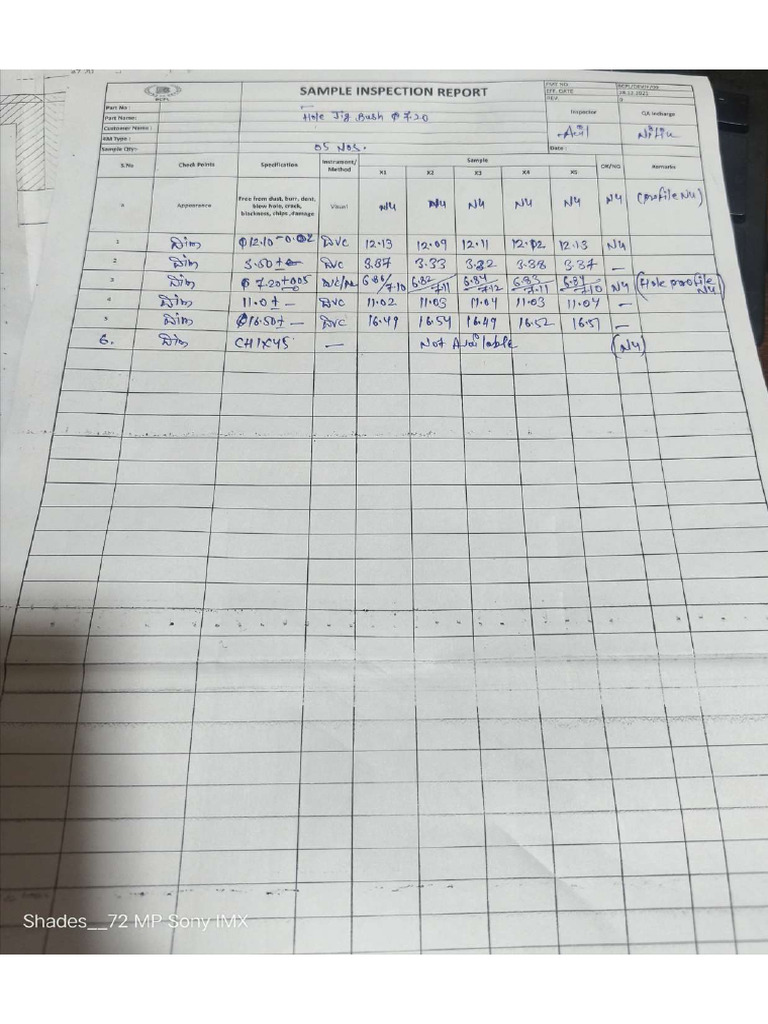 SAMPLE INSPECTION REPORT
EFF. DATE 28.12.2021
REV. 0
Part No :
Part Name: Hole Jig Bush φ 7.20
Inspector QA Incharge
Customer Name :
Anil Nitin
RM Type :
Sample Qty:- 05 NOS. Date :
S.No Check Points Specification Instrument/ Method Sample OK/NG Remarks
X1 X2 X3 X4 X5
Appearance Free from dust, burr, dent, blow hole, crack, blackness, chips ,damage Visual N4 N4 N4 N4 N4 N4 (profile N4)
1 Dim φ12.10-0.02 DVC 12.13 12.09 12.11 12.02 12.13 N4
2 Dim 3.50± DVC 3.37 3.33 3.32 3.38 3.37 —
3 Dim φ 7.20+005 6.86/7.10 6.82/7.11 6.84/7.12 6.83/7.11 6.84/7.10 N4 (Hole porofile N4)
4 Dim 11.0± — DVC 11.02 11.03 11.04 11.03 11.04 —
5 Dim φ16.50± — DVC 16.49 16.54 16.49 16.52 16.51 —
6. Dim CH1X45 — Not Available (N4)
Shades__72 MP Sony IMX